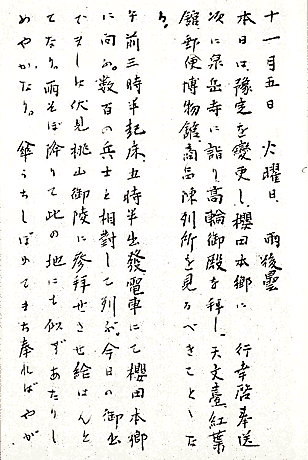 十一月五日　火曜日　雨後曇
本日は豫定を變更し、櫻田本郷に　行幸啓奉送
次に泉岳寺に詣り高輪御殿を拜し、天文臺、紅葉
館、郵便博物館、商品陳列所を見るべきことゝな
る。
午前三時半起床五時半出發電車にて櫻田本郷
に向ふ。數百の兵士と相對して列ぶ。今日の御出
でましは伏見桃山御陵に參拜せさせ給はんと
てなり。雨そぼ降りて此の地にも似ずあたりし
めやかなり。傘うちしぼめてまち奉ればやが